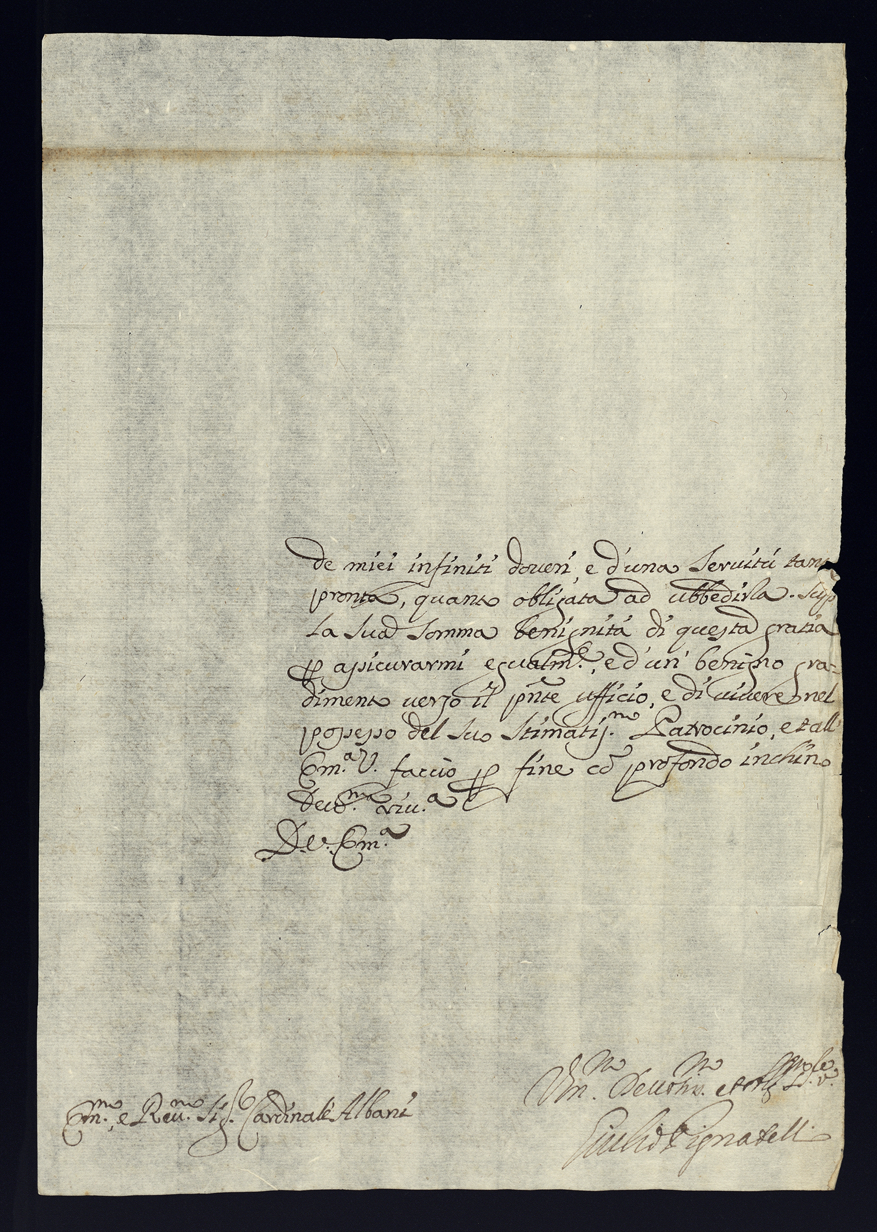 de miei infiniti doueri e d'una Seruitù tant
pronta, quanto obligata ad ubbedirla. Supp
La Sua Somma benignità di questa gratia
p assicurarmi egualm.te, e d'un' benigno gra=
dimento uerso il pnte ufficio, e di uiuere nel
possesso del Suo Stimatiss.mo Patrocinio, et all'
Em.a V. faccio p fine cō profondo inchino
riu.a
D. V. Em.a
Vm.mo Deuotiss.mo
Em.mo, e Reu.mo Sig.r Cardinale Albani
Giulio Pignatelli